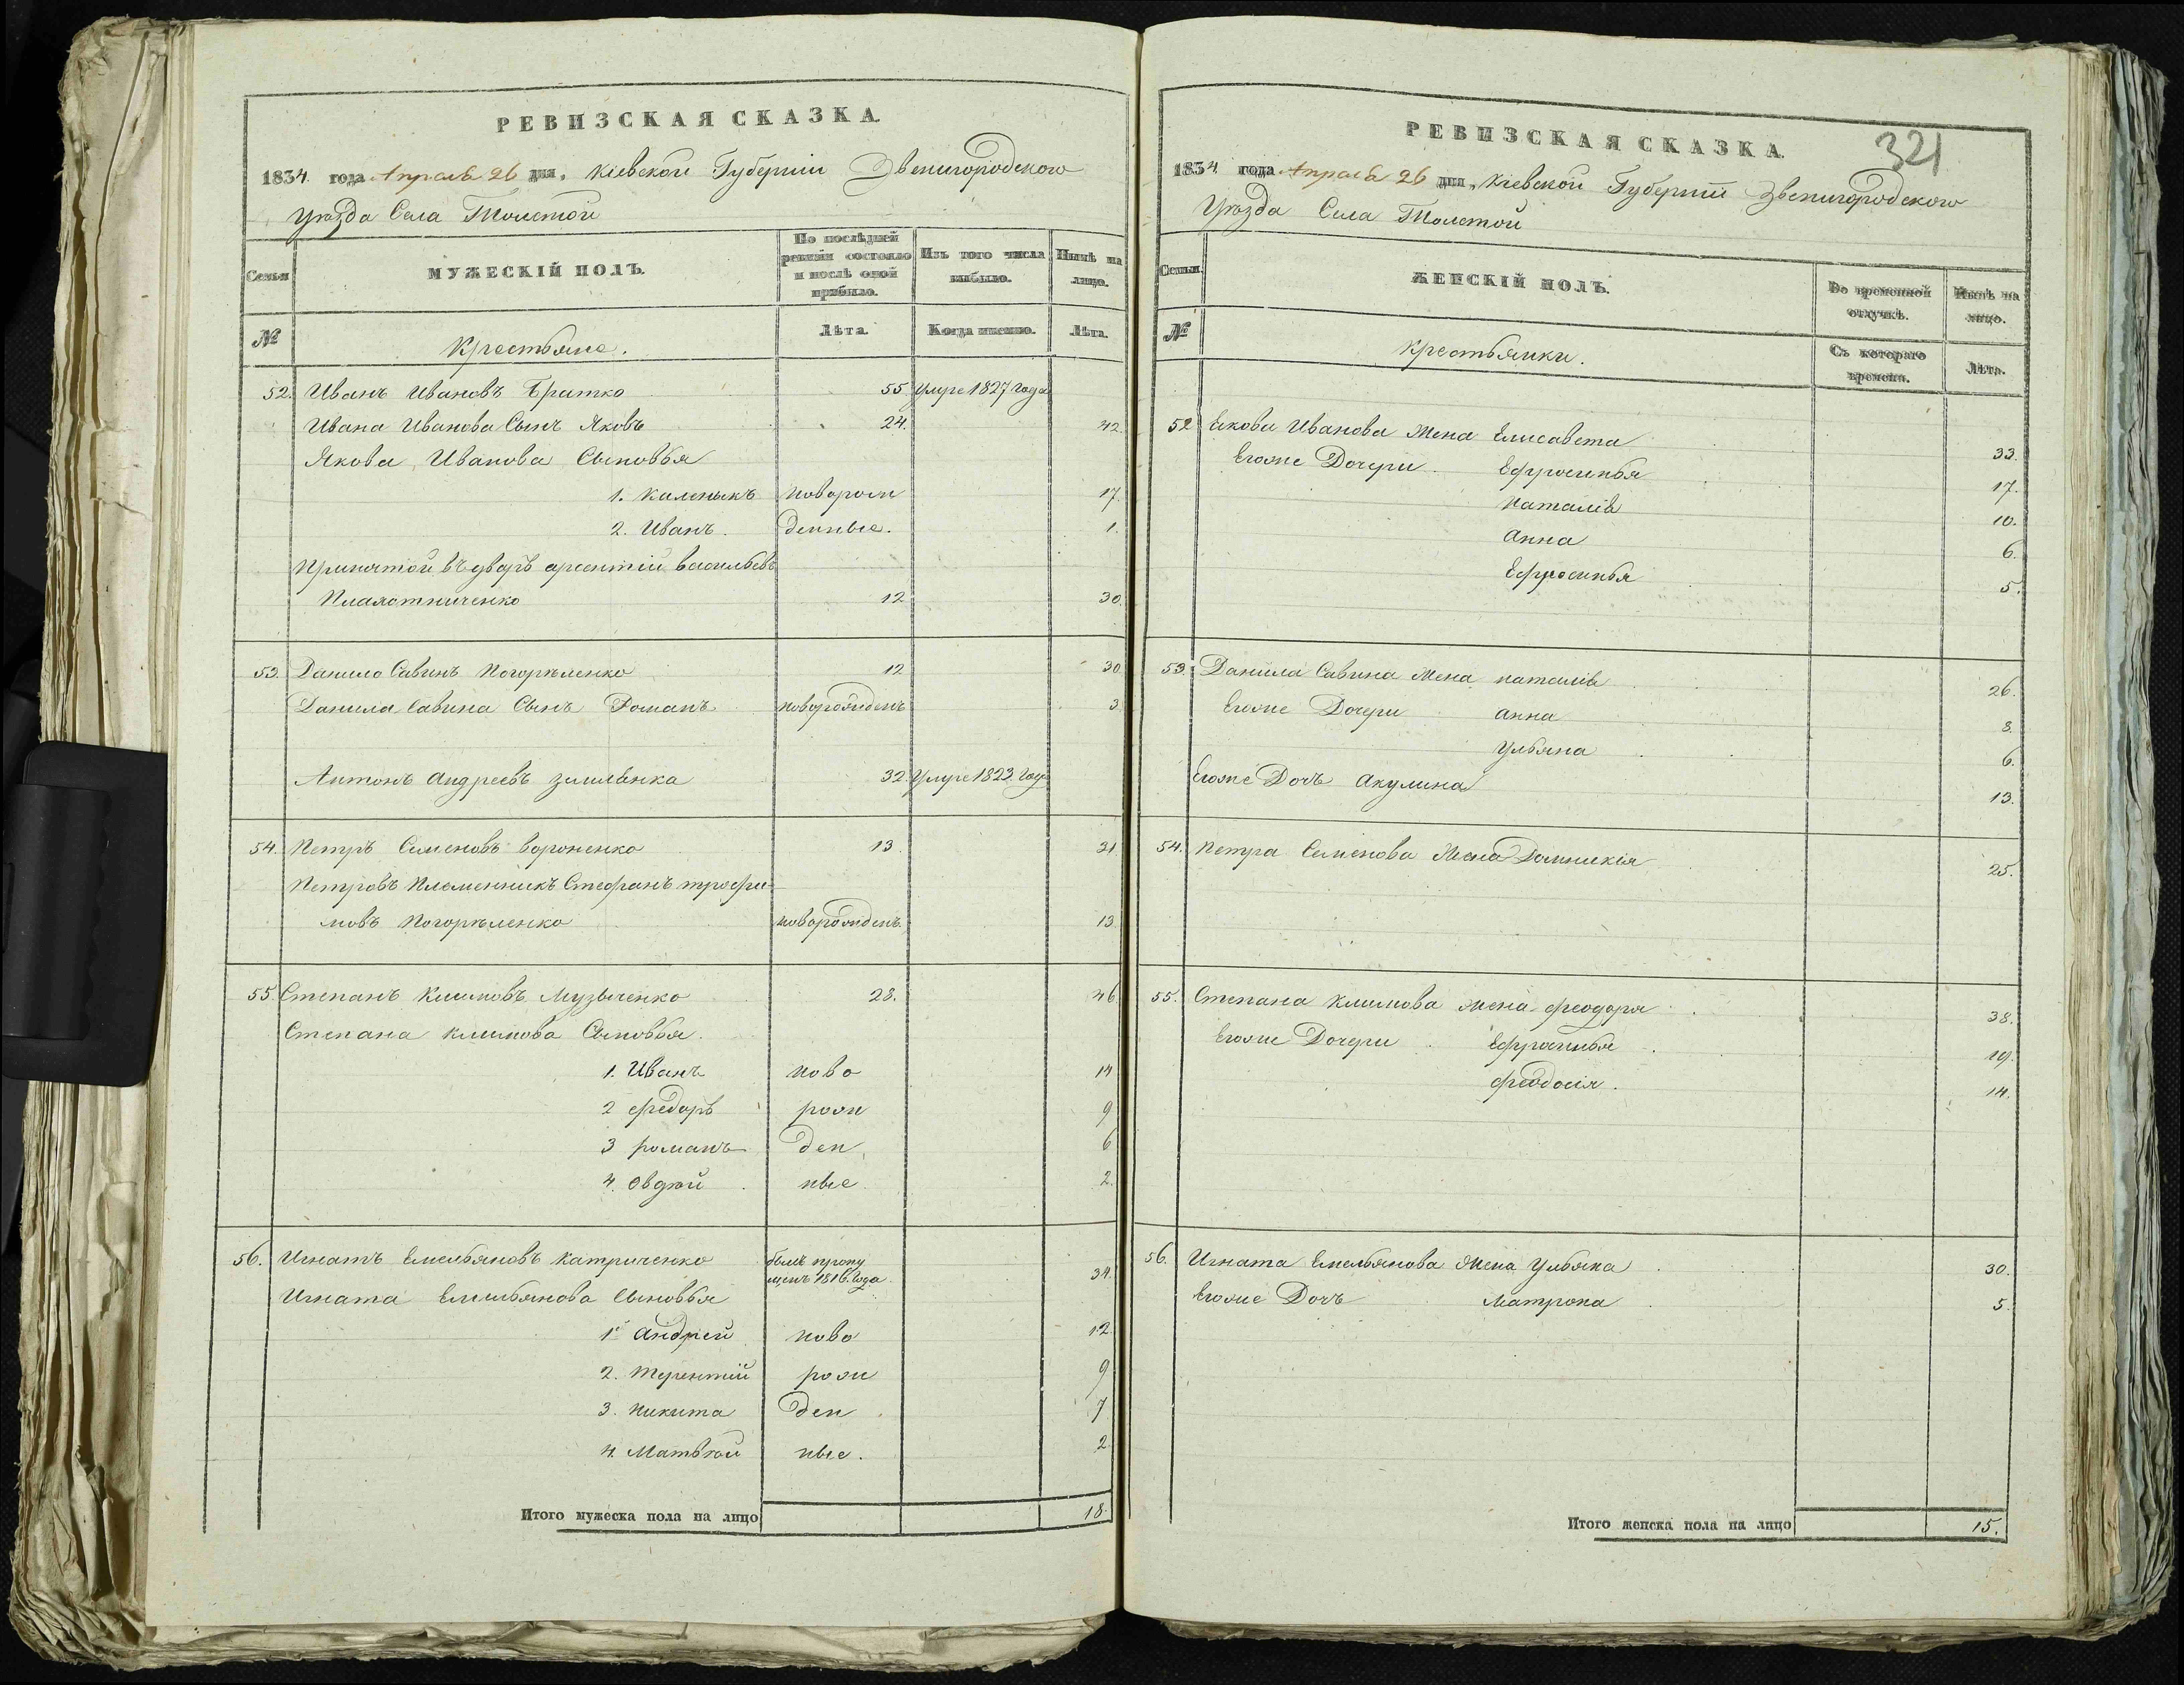 РЕВИЗСКАЯ СКАЗКА.
1834 года Апреля 26 дня, Кіевской Губерніи Звенигородского
Уѣзда Села Толстой
Семьи
МУЖЕСКІЙ ПОЛЪ.
По послѣдней ревизіи состояло и послѣ оной прибыло.
Изъ того числа выбыло.
Нынѣ на лицо.
№
Крестьяне.
Лѣта.
Когда именно.
Лѣта.
52. Иванъ Ивановъ Братко 55 Умре 1827 года
Ивана Иванова Сынъ Яковъ 24. 42.
Якова Иванова Сыновья
1. Каленыкъ новорож 17.
2. Иванъ. денные. 1.
Принятой въ дворъ арсентій васильевъ
12 30.
53. Данило Савинъ Погорѣленко 12 30
Данила Савина Сынъ Романъ новорожденъ 3
Антонъ Андреевъ 32. Умре 1823 года
54. Петръ Семеновъ Вороненко 13. 31
Петровъ Племенникъ Стефанъ трофи-
мовъ Погорѣленко новорожденъ. 13
55. Степанъ Климовъ Музыченко 28. 46
Степана Климова Сыновья.
1. Иванъ ново 14
2 Федоръ рож 9
3 романъ ден 6
4. Овдѣй ные 2.
56. Игнатъ Емельяновъ Катриченко былъ пропу 34.
щенъ 1816. года
Игната Емельянова Сыновья
1. Андрей ново 12.
2. Терентій рож 9
3. Никита ден 7
4. Матвѣй ные. 2
Итого мужеска пола на лицо 18.
321
РЕВИЗСКАЯ СКАЗКА.
1834 года Апреля 26 дня, Кіевской Губерніи Звенигородского
Уѣзда Села Толстой
Семьи.
ЖЕНСКІЙ ПОЛЪ.
Во временной отлучкѣ.
Нынѣ на лицо.
№
Крестьянки.
Съ котораго времени.
Лѣта.
52 Якова Иванова Жена Елисавета 33.
Егоже Дочери Ефросинья 17.
Наталія 10.
Анна 6.
Ефросинья 5.
53. Данила Савина Жена наталія 26.
Егоже Дочери анна 8.
Ульяна 6.
Егоже Дочь Акулина 13.
54. Петра Семенова Жена Домникія 25.
55. Степана Климова жена феодора 38.
Егоже Дочери Ефросинья 19.
феодосія. 14.
56. Игната Емельянова Жена Ульяна 30.
Егоже Дочь Матрона 5.
Итого женска пола на лицо 15.